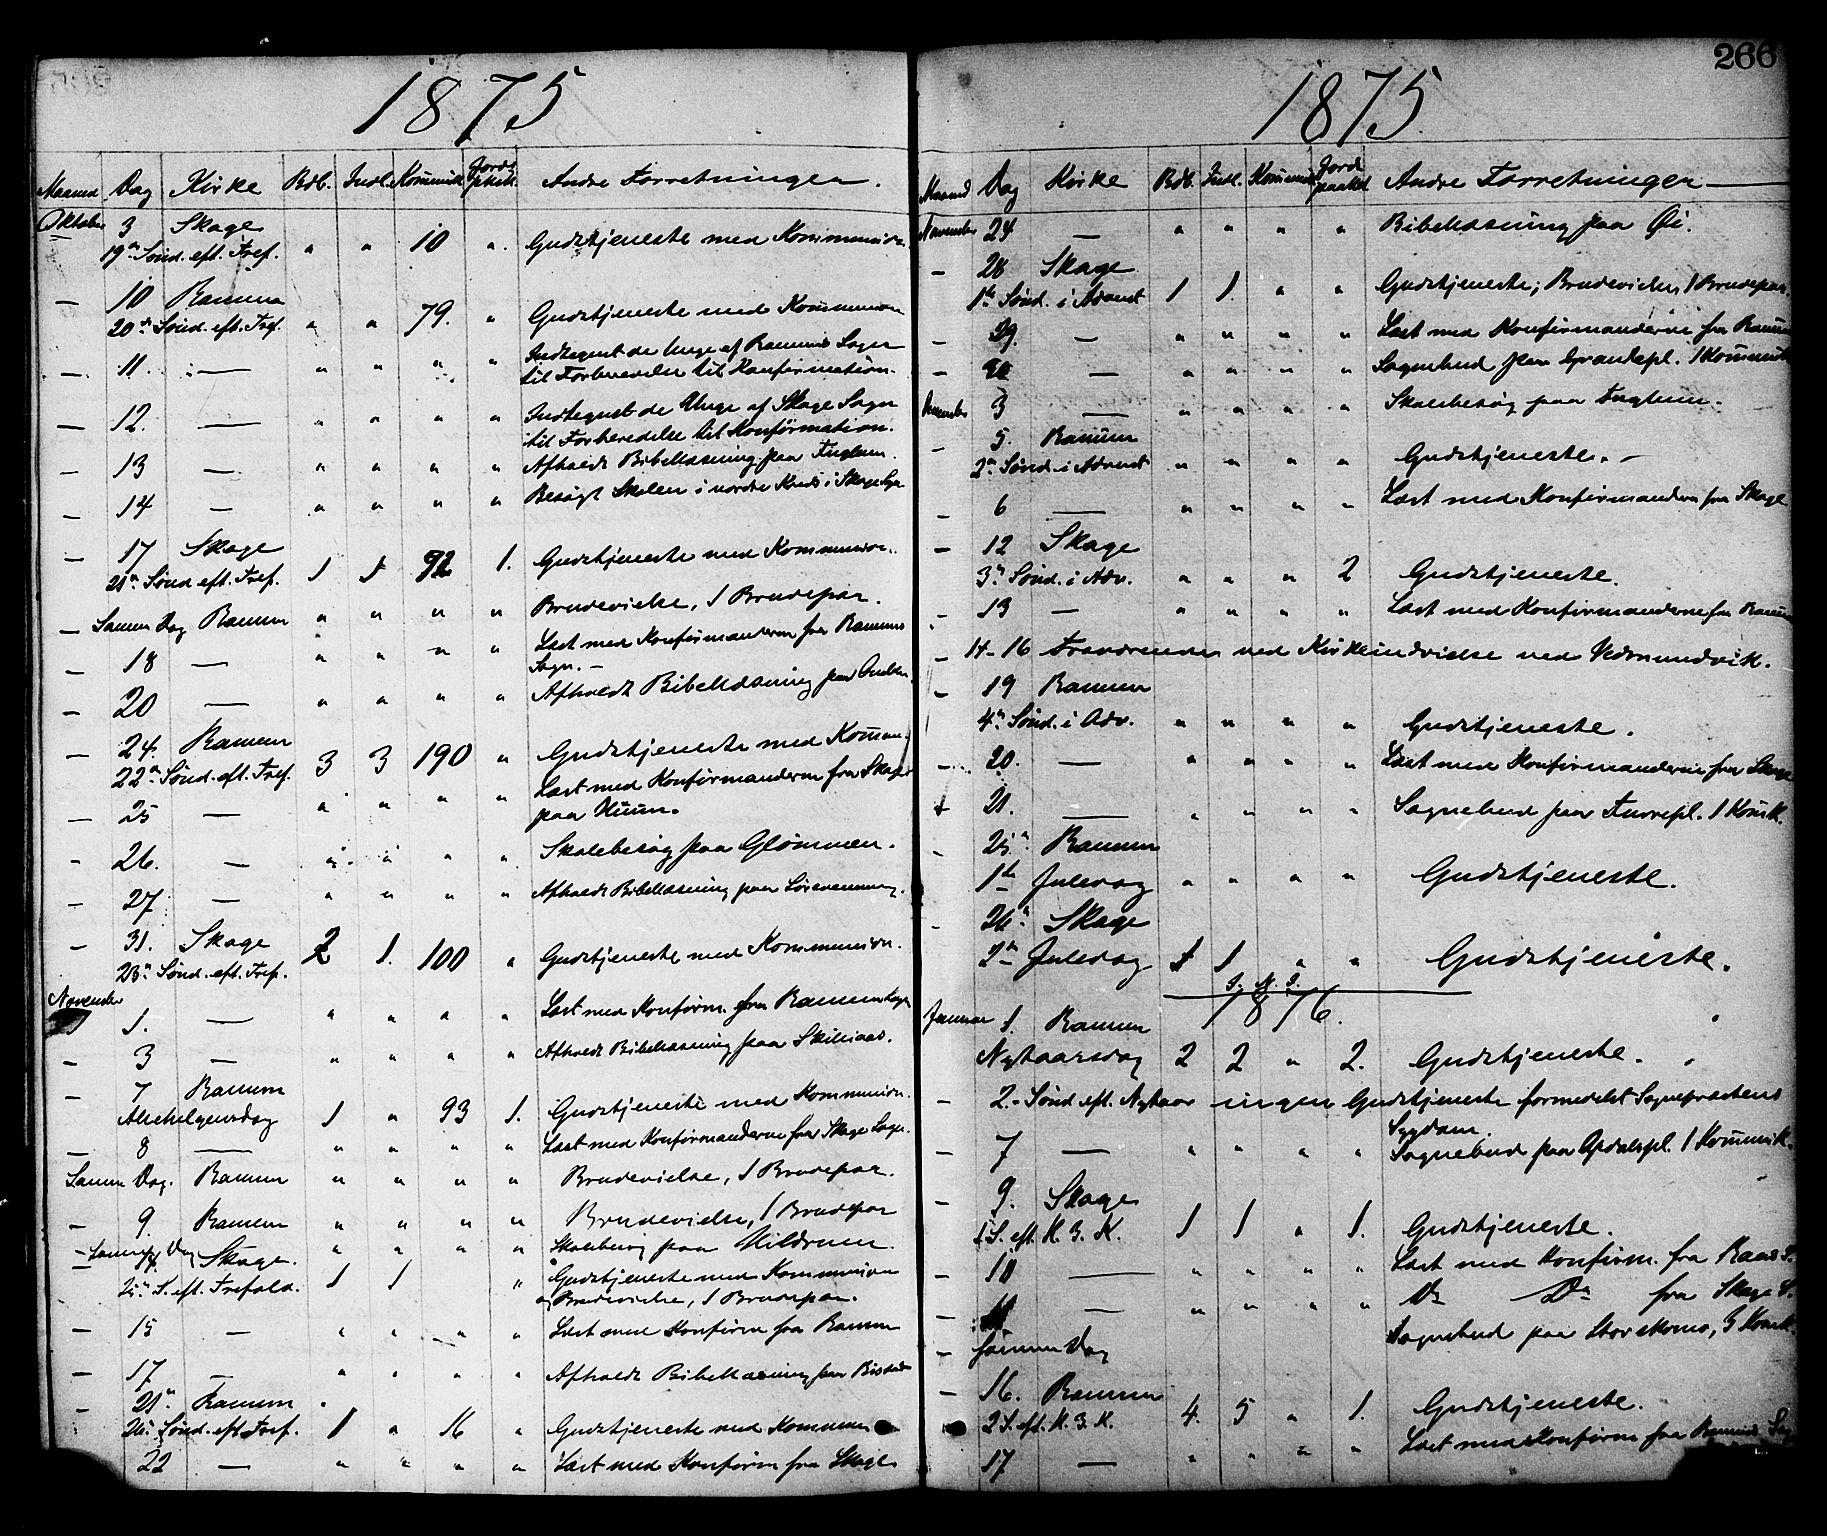 1875
Maaned Dag Kirke Rdb. Indl. Kommunik. Jords- Andre Forretninger.
Oktober 3 Skage
19de Sønd. eft. Tref. " " 10 " Gudstjeneste med Kommunion.
— 10 Ranum
20de Sønd. eft. Tref. " " 79. " Gudstjeneste med Kommunion
— 11. — " " " " Indtegnet de Unge af Ranums Sogn
til Forberedelse til Konfirmation.
— 12. — " " " " Indtegnet de Unge af Skage Sogn
til Forberedelse til Konfirmation.
— 13 — " " " " Afholdt Bibellæsning paa Fuglum.
— 14 — " " " " Besøgt Skolen i nordre Kreds i Skage Sogn
— 17 Skage
21de Sønd. eft. Tref. 1 1 92 1. Gudstjeneste med Kommunion.
— Samme Dag Ranum " " " " Brudevielse, 1 Brudepar.
— 18 — " " " " Læst med Konfirmanderne fra Ranums
Sogn. —
— 20 — " " " " Afholdt Bibellæsning paa
— 24. Ranum
22de Sønd. eft. Tref. 3 3 190 " Gudstjeneste med Kommun.
— 25 — " " " " Læst med Konfirmanderne fra Skage
paa Huun.
— 26. — " " " " Skolebesøg paa Glømmen.
— 27 — " " " " Afholdt Bibellæsning paa
— 31. Skage
23de Sønd. eft. Tref. 2 1. 100 " Gudstjeneste med Kommunion.
November
1. — " " " " Læst med Konfirm. fra Ranum Sogn
— 3 — " " " " Afholdt Bibellæsning paa
— 7 Ranum
Allehelgensdag 1 " 93 1. Gudstjeneste med Kommunion.
— 8 — " " " " Læst med Konfirmanderne fra Skage Sogn.
Samme Dag. Ranum " " " " Brudevielse, 1 Brudepar.
— 9. Ranum " " " " Brudevielse, 1 Brudepar
— Samme Dag " " " " Skolebesøg paa Hildrum.
— 14. Skage.
25de S. eft. Trefold. 1 1 " Gudstjeneste med Kommunion
og Brudevielse, 1 Brudepar.
— 15 — " " " " Læst med Konfirm fra Ranum
— 17 — " " " " Afholdt Bibellæsning paa
— 21de Ranum
26de Sønd. eft. Tref. 1 " 16 " Gudstjeneste med Kommun
22 — " " " " Læst med Konfirm fra Skage
266
1875.
Maaned Dag Kirke Rdb. Indl. Kommunik Jord- paakd. Andre Forretninger —
November 24 — " " " " Bibellæsning paa Øi.
— 28 Skage
1ste Sønd. i Advent 1 1. " " Gudstjeneste; Brudevielse, 1 Brudepar.
— 29. — " " " " Læst med Konfirmanderne fra Ranum
— 30 — " " " " Sognebud paa 1 Kommunik
December 3 — " " " " Skolebesøg paa Fuglum.
— 5. Ranum
2den Sønd. i Advent " " " " Gudstjeneste. —
— 6 — " " " " Læst med Konfirmanderne fra Skage
— 12 Skage
3die Sønd. i Adv. " " " 2 Gudstjeneste.
— 13 — " " " " Læst med Konfirmanderne fra Ranum
— 14-16 Fraværende ved Kirkeindvielse ved Vemundvik.
— 19 Ranum
4de Sønd. i Adv. " " " " Gudstjeneste.
— 20. — " " " " Læst med Konfirmanderne fra Skage
21. — " " " " Sognebud paa 1 Komik.
— 25de Ranum
1ste Juledag " " " " Gudstjeneste.
— 26de Skage
2den Juledag 1 1 " " Gudstjeneste.
I. N. I.
1876.
Januar 1. Ranum
Nytaarsdag 2 2 " 2. Gudstjeneste.
— 2. Sønd eft. Nytaar ingen Gudstjeneste formedelst Sognepræstens
Sygdom.
— 7 — " " " " Sognebud paa 1 Kommunik.
— 9. Skage
1 S. eft. H. 3. K. 1 1 " 1. Gudstjeneste.
— 10 — " " " " Læst med Konfirm. fra
— 11 — " " " " Do Do fra Skage S.
— Samme Dag Sognebud paa 3 Komk.
— 16. Ranum
2 S. eft. H. 3. K. 4. 5 " 1. Gudstjeneste.
17 — " " " " Læst med Konfirm fra Ranums Sog